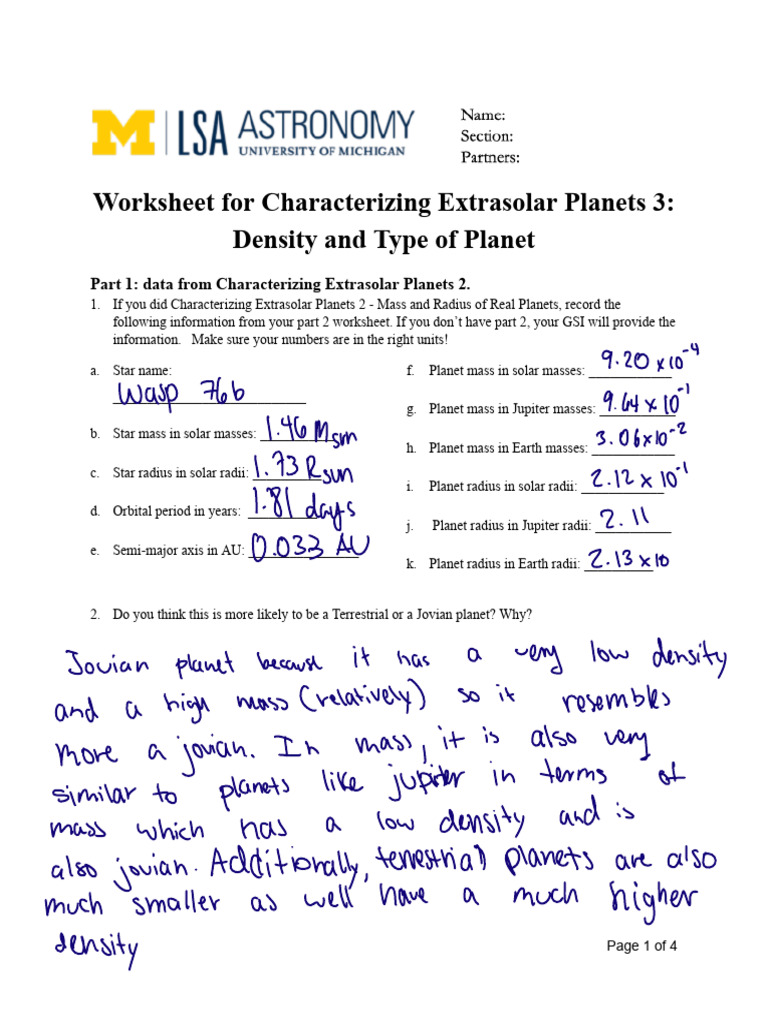 M | LSA ASTRONOMY
UNIVERSITY OF MICHIGAN
Name:
Section:
Partners:
Worksheet for Characterizing Extrasolar Planets 3:
Density and Type of Planet
Part 1: data from Characterizing Extrasolar Planets 2.
1. If you did Characterizing Extrasolar Planets 2 - Mass and Radius of Real Planets, record the
following information from your part 2 worksheet. If you don't have part 2, your GSI will provide the
information. Make sure your numbers are in the right units!
a. Star name:
Wasp 76b
b. Star mass in solar masses: 1.46 Msm
c. Star radius in solar radii: 1.73 Rsun
d. Orbital period in years: 1.81 days
e. Semi-major axis in AU: 0.033 AU
f. Planet mass in solar masses: 9.20 x10⁻⁴
g. Planet mass in Jupiter masses: 9.64 x 10⁻¹
h. Planet mass in Earth masses: 3.06x10⁻²
i. Planet radius in solar radii: 2.12 x 10⁻¹
j. Planet radius in Jupiter radii: 2.11
k. Planet radius in Earth radii: 2.13 x10
2. Do you think this is more likely to be a Terrestrial or a Jovian planet? Why?
Jovian planet because it has a very low density
and a high mass (relatively) so it resembles
more a jovian. In mass, it is also very
similar to planets like jupiter in terms of
mass which has a low density and is
also jovian. Additionally, terrestrial planets are also
much smaller as well have a much higher
density
Page 1 of 4